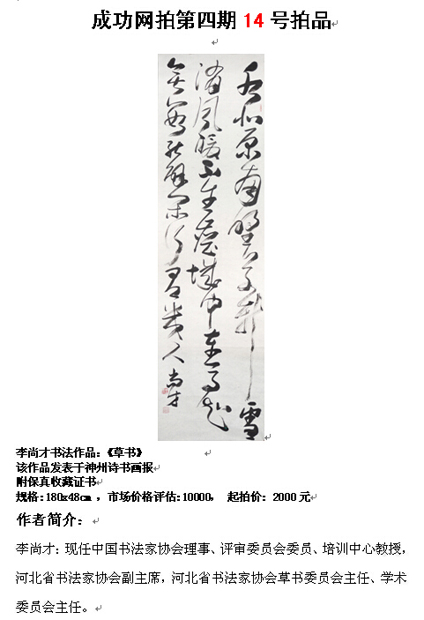 成功网拍第四期 14 号拍品
水北原南野草新雪
消风暖不生尘城中车马应
无数能解闲行有几人 尚才
李尚才书法作品：《草书》
该作品发表于神州诗书画报
附保真收藏证书
规格:180x48cm ，市场价格评估:10000， 起拍价：2000 元
作者简介：
李尚才：现任中国书法家协会理事、评审委员会委员、培训中心教授，
河北省书法家协会副主席，河北省书法家协会草书委员会主任、学术
委员会主任。